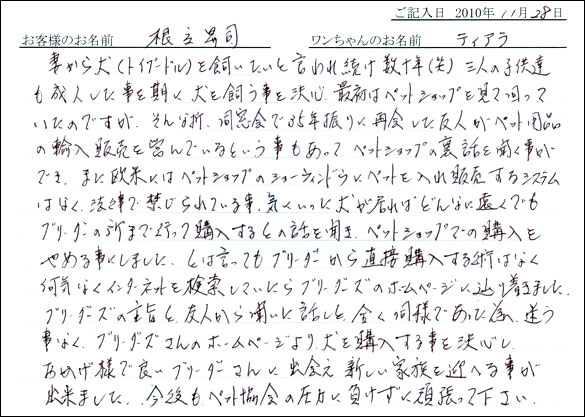 ご記入日 2010年 11月 28日
お客様のお名前 根立昌司 ワンちゃんのお名前 ティアラ
妻から犬(トイプードル)を飼いたいと言われ続け数十年(笑) 三人の子供達
も成人した事を期に、犬を飼う事を決心。最初はペットショップを見て回って
いたのですが、そんな折、同窓会で35年振りに再会した友人がペット用品
の輸入販売を営んでいるという事もあって ペットショップの裏話を聞く事が
でき、また欧米にはペットショップのショーウィンドウにペットを入れ販売するシステム
はなく、法律で禁じられている事、気にいった犬が居ればどんなに遠くでも
ブリーダーの所まで行って購入するとの話を聞き、ペットショップでの購入を
やめる事にしました。とは言ってもブリーダーから直接購入する術はなく
何気なくインターネットを検索していたらブリーダーズのホームページに辿り着きました。
ブリーダーズの主旨と、友人から聞いた話しと、全く同様であった為、迷う
事なく、ブリーダーズさんのホームページより、犬を購入する事を決心し、
おかげ様で良いブリーダーさんに出会え 新しい家族を迎へる事が
出来ました。今後もペット協会の圧力に負けずに頑張って下さい。